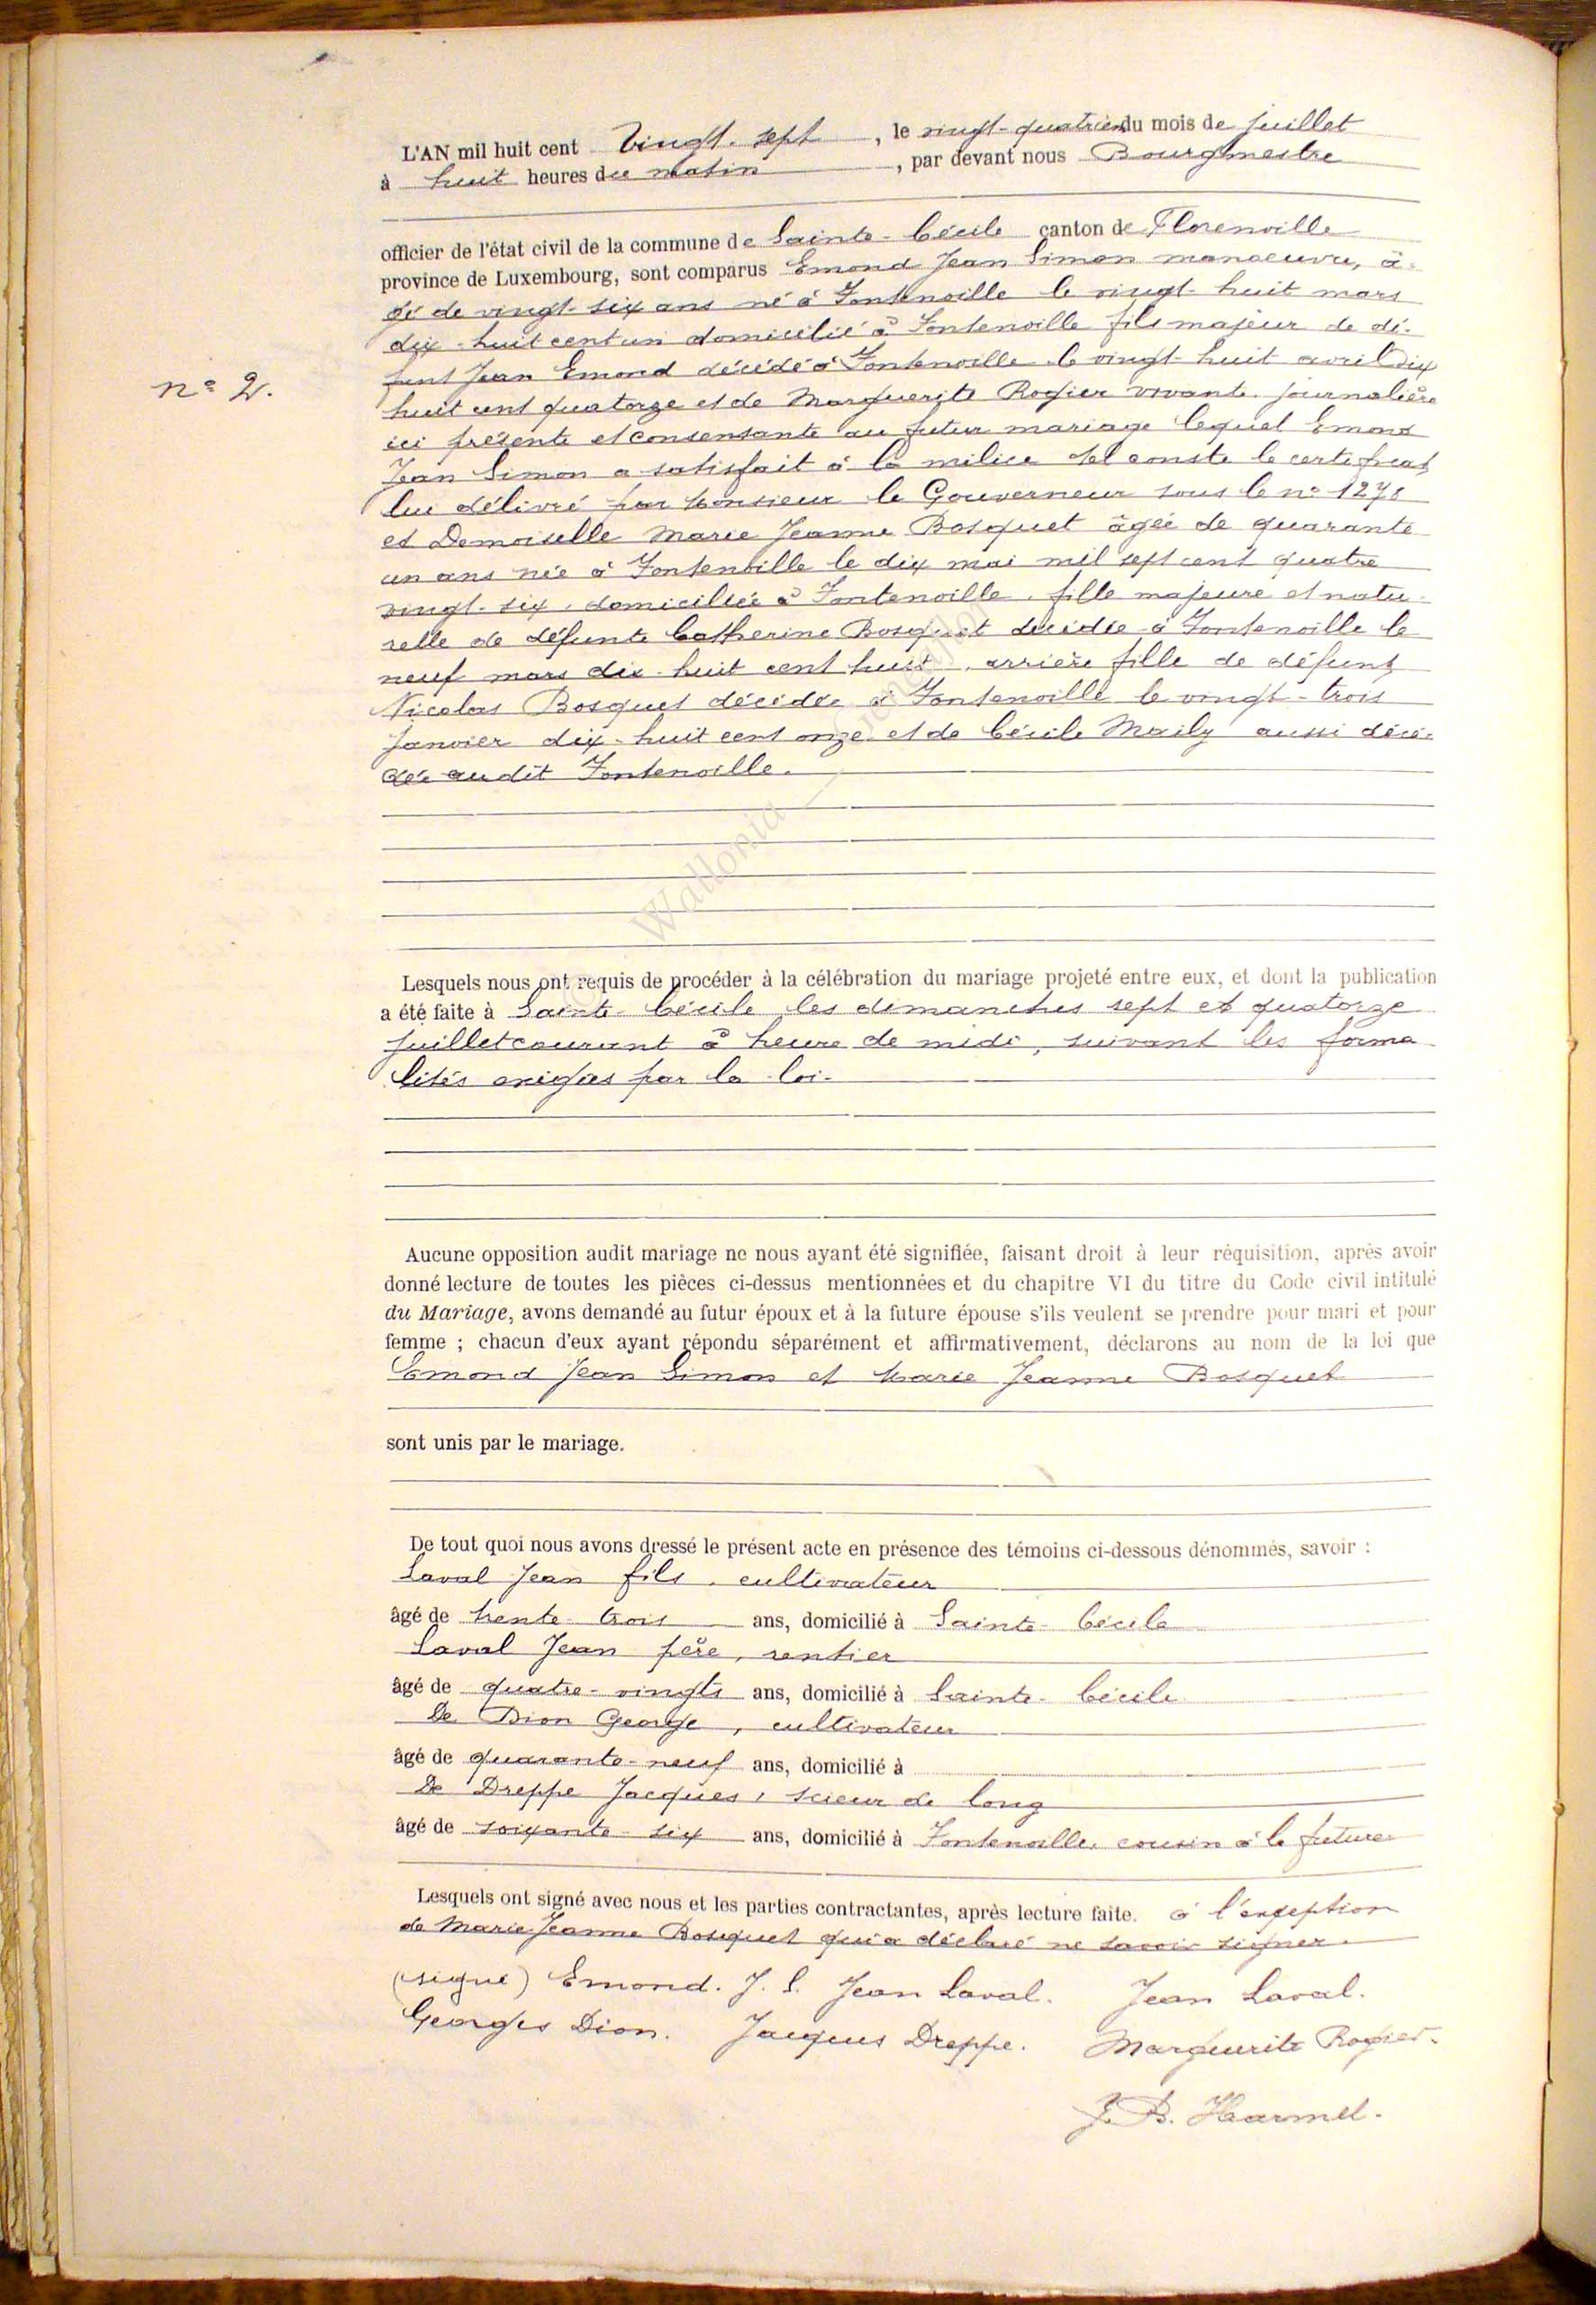 L'AN mil huit cent vingt-sept, le vingt-quatrième du mois de juillet
à huit heures du matin, par devant nous Bourgmestre
officier de l'état civil de la commune de Sainte-Cécile canton de Florenville
province de Luxembourg, sont comparus Emond Jean Simon manoeuvre, â-
gé de vingt-six ans né à Fontenoille le vingt-huit mars
dix-huit cent un domicilié à Fontenoille fils majeur de dé-
funt Jean Emond décédé à Fontenoille le vingt-huit avril dix
n° 2.
huit cent quatorze et de Marguerite Rogier vivante journalière
ici présente et consentante au futur mariage lequel Emond
Jean Simon a satisfait à la milice tel conste le certificat
lui délivré par Monsieur le Gouverneur sous le n°
et Demoiselle Marie Jeanne Bosquet âgée de quarante
un ans née à Fontenoille le dix mai mil sept cent quatre
vingt-six, domiciliée à Fontenoille, fille majeure et natu-
relle de défunte Catherine Bosquet décédée à Fontenoille le
neuf mars dix-huit cent huit, arrière fille de défunt
Nicolas Bosquet décédée à Fontenoille le vingt-trois
janvier dix-huit cent onze et de Cécile Maily aussi décé-
dée au dit Fontenoille.
Wallonia
Lesquels nous ont requis de procéder à la célébration du mariage projeté entre eux, et dont la publication
a été faite à Sainte-Cécile les dimanches sept et quatorze
juillet courant à heure de midi, suivant les forma
lités exigées par la loi.
Aucune opposition audit mariage ne nous ayant été signifiée, faisant droit à leur réquisition, après avoir
donné lecture de toutes les pièces ci-dessus mentionnées et du chapitre VI du titre du Code civil intitulé
du Mariage, avons demandé au futur époux et à la future épouse s'ils veulent se prendre pour mari et pour
femme ; chacun d'eux ayant répondu séparément et affirmativement, déclarons au nom de la loi que
Emond Jean Simon et Marie Jeanne Bosquet
sont unis par le mariage.
De tout quoi nous avons dressé le présent acte en présence des témoins ci-dessous dénommés, savoir :
Laval Jean fils, cultivateur
âgé de trente-trois ans, domicilié à Sainte-Cécile
Laval Jean père, rentier
âgé de quatre-vingts ans, domicilié à Sainte-Cécile
De Dion George, cultivateur
âgé de quarante-neuf ans, domicilié à
De Dreppe Jacques, scieur de long
âgé de soixante-six ans, domicilié à Fontenoille, cousin à la future
Lesquels ont signé avec nous et les parties contractantes, après lecture faite. à l'exception
de Marie Jeanne Bosquet qui a déclaré ne savoir signer.
(signé) Emond. J. S. Jean Laval. Jean Laval.
Georges Dion. Jacques Dreppe. Marguerite Rogier.
J. B. Harmel.